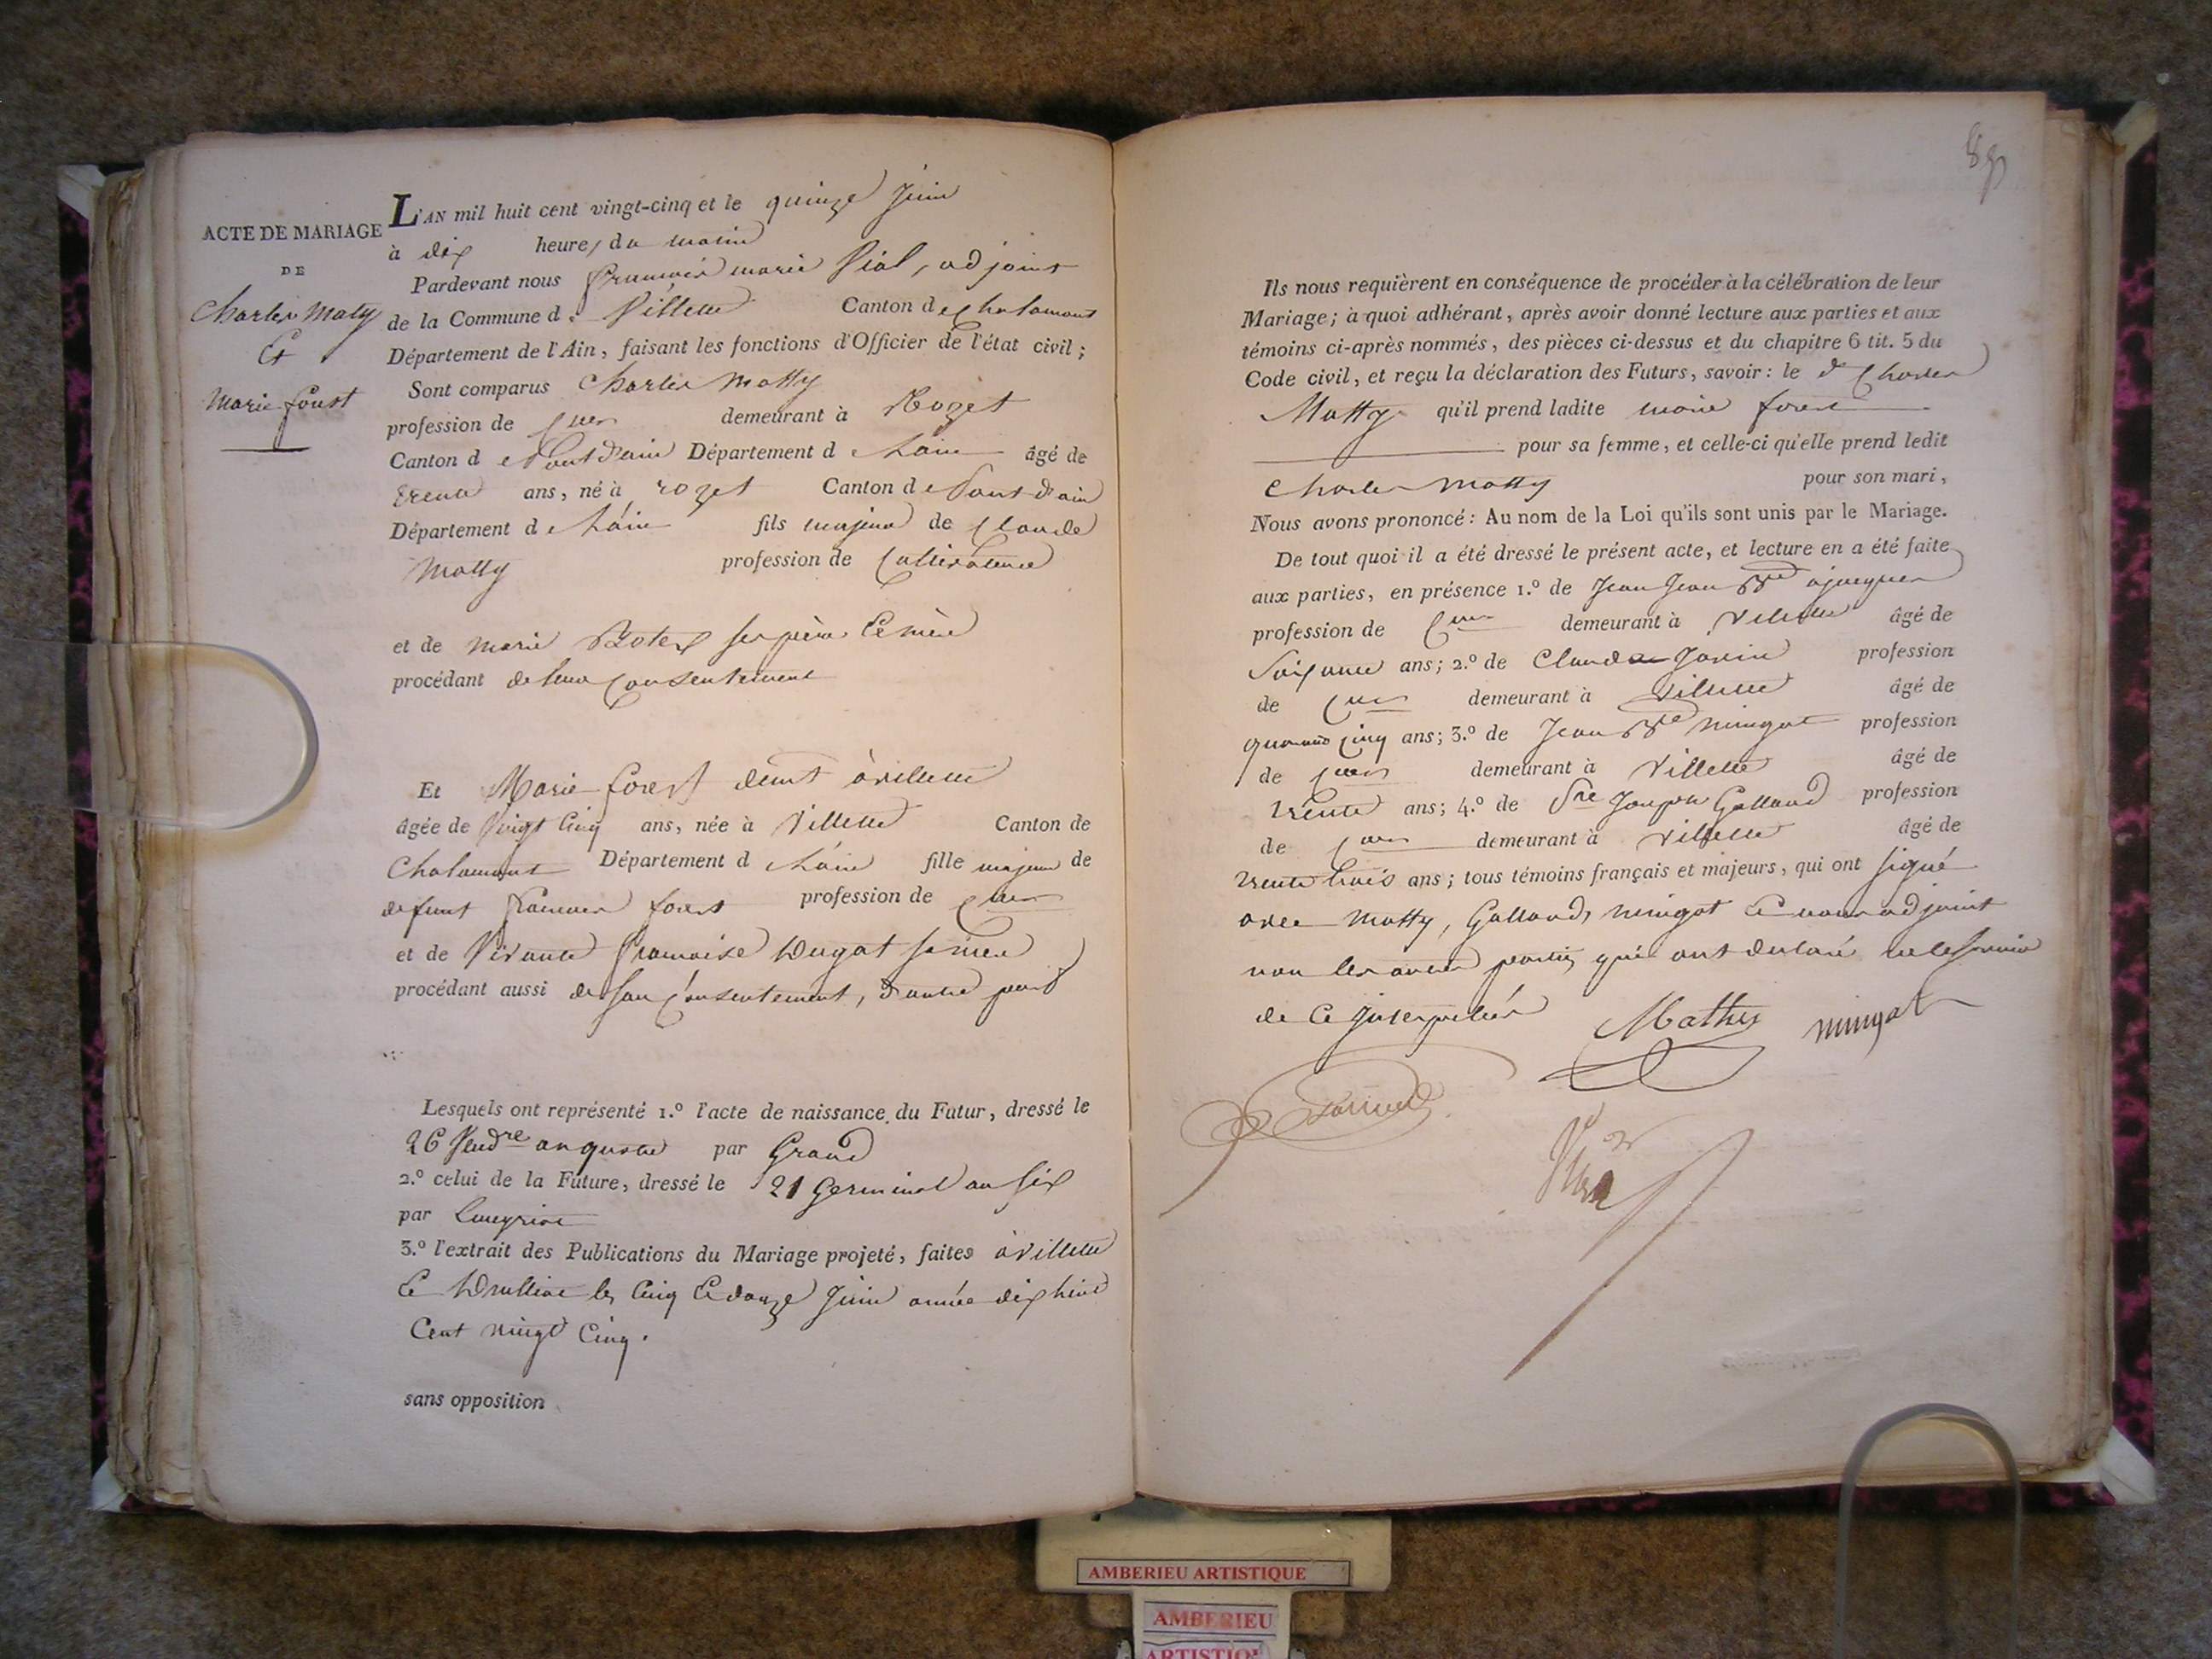 ACTE DE MARIAGE
DE
Charles Maty
Et
Marie forest
L'AN mil huit cent vingt-cinq et le quinze Juin
à dix heures du matin
Pardevant nous françois marie Vial, adjoint
de la Commune de Villette Canton de Chalamont
Département de l'Ain, faisant les fonctions d'Officier de l'état civil;
Sont comparus Charles Matty
profession de demeurant à Rozet
Canton de Pont d'ain Département de L'ain âgé de
trente ans, né à rozet Canton de Pont d'ain
Département de L'ain fils majeur de Claude
Matty profession de Cultivateur
et de Marie ses père et mère
procédant de leur Consentement
Et Marie forest demt à villette
âgée de Vingt Cinq ans, née à Villette Canton de
Chalamont Département de L'ain fille majeure de
defunt forest profession de
et de Vivante francoise sa mère
procédant aussi de son Consentement, d'autre part
Lesquels ont représenté 1.º l'acte de naissance du Futur, dressé le
26 Vendre an quatre par Grand
2.º celui de la Future, dressé le 21 Germinal an Six
par
3.º l'extrait des Publications du Mariage projeté, faites à Villette
Et les Cinq Et douze Juin année dix huit
Cent vingt Cinq.
sans opposition
89
Ils nous requièrent en conséquence de procéder à la célébration de leur
Mariage; à quoi adhérant, après avoir donné lecture aux parties et aux
témoins ci-après nommés, des pièces ci-dessus et du chapitre 6 tit. 5 du
Code civil, et reçu la déclaration des Futurs, savoir: le dt Charles
Matty qu'il prend ladite marie forest
pour sa femme, et celle-ci qu'elle prend ledit
Charles Matty pour son mari,
Nous avons prononcé: Au nom de la Loi qu'ils sont unis par le Mariage.
De tout quoi il a été dressé le présent acte, et lecture en a été faite
aux parties, en présence 1.º de Jean Jean Bte
profession de demeurant à Villette âgé de
Soixante ans; 2.º de Claude profession
de demeurant à Villette âgé de
quarante Cinq ans; 3.º de Jean Bte mingat profession
de demeurant à Villette âgé de
trente ans; 4.º de Joseph Galland profession
de demeurant à Villette âgé de
trente trois ans; tous témoins français et majeurs, qui ont signé
avec Matty, Galland, mingat Et nous adjoint
non les autres parties qui ont declaré ne le savoir
de ce
Mathy mingat
AMBERIEU ARTISTIQUE
AMBERIEU